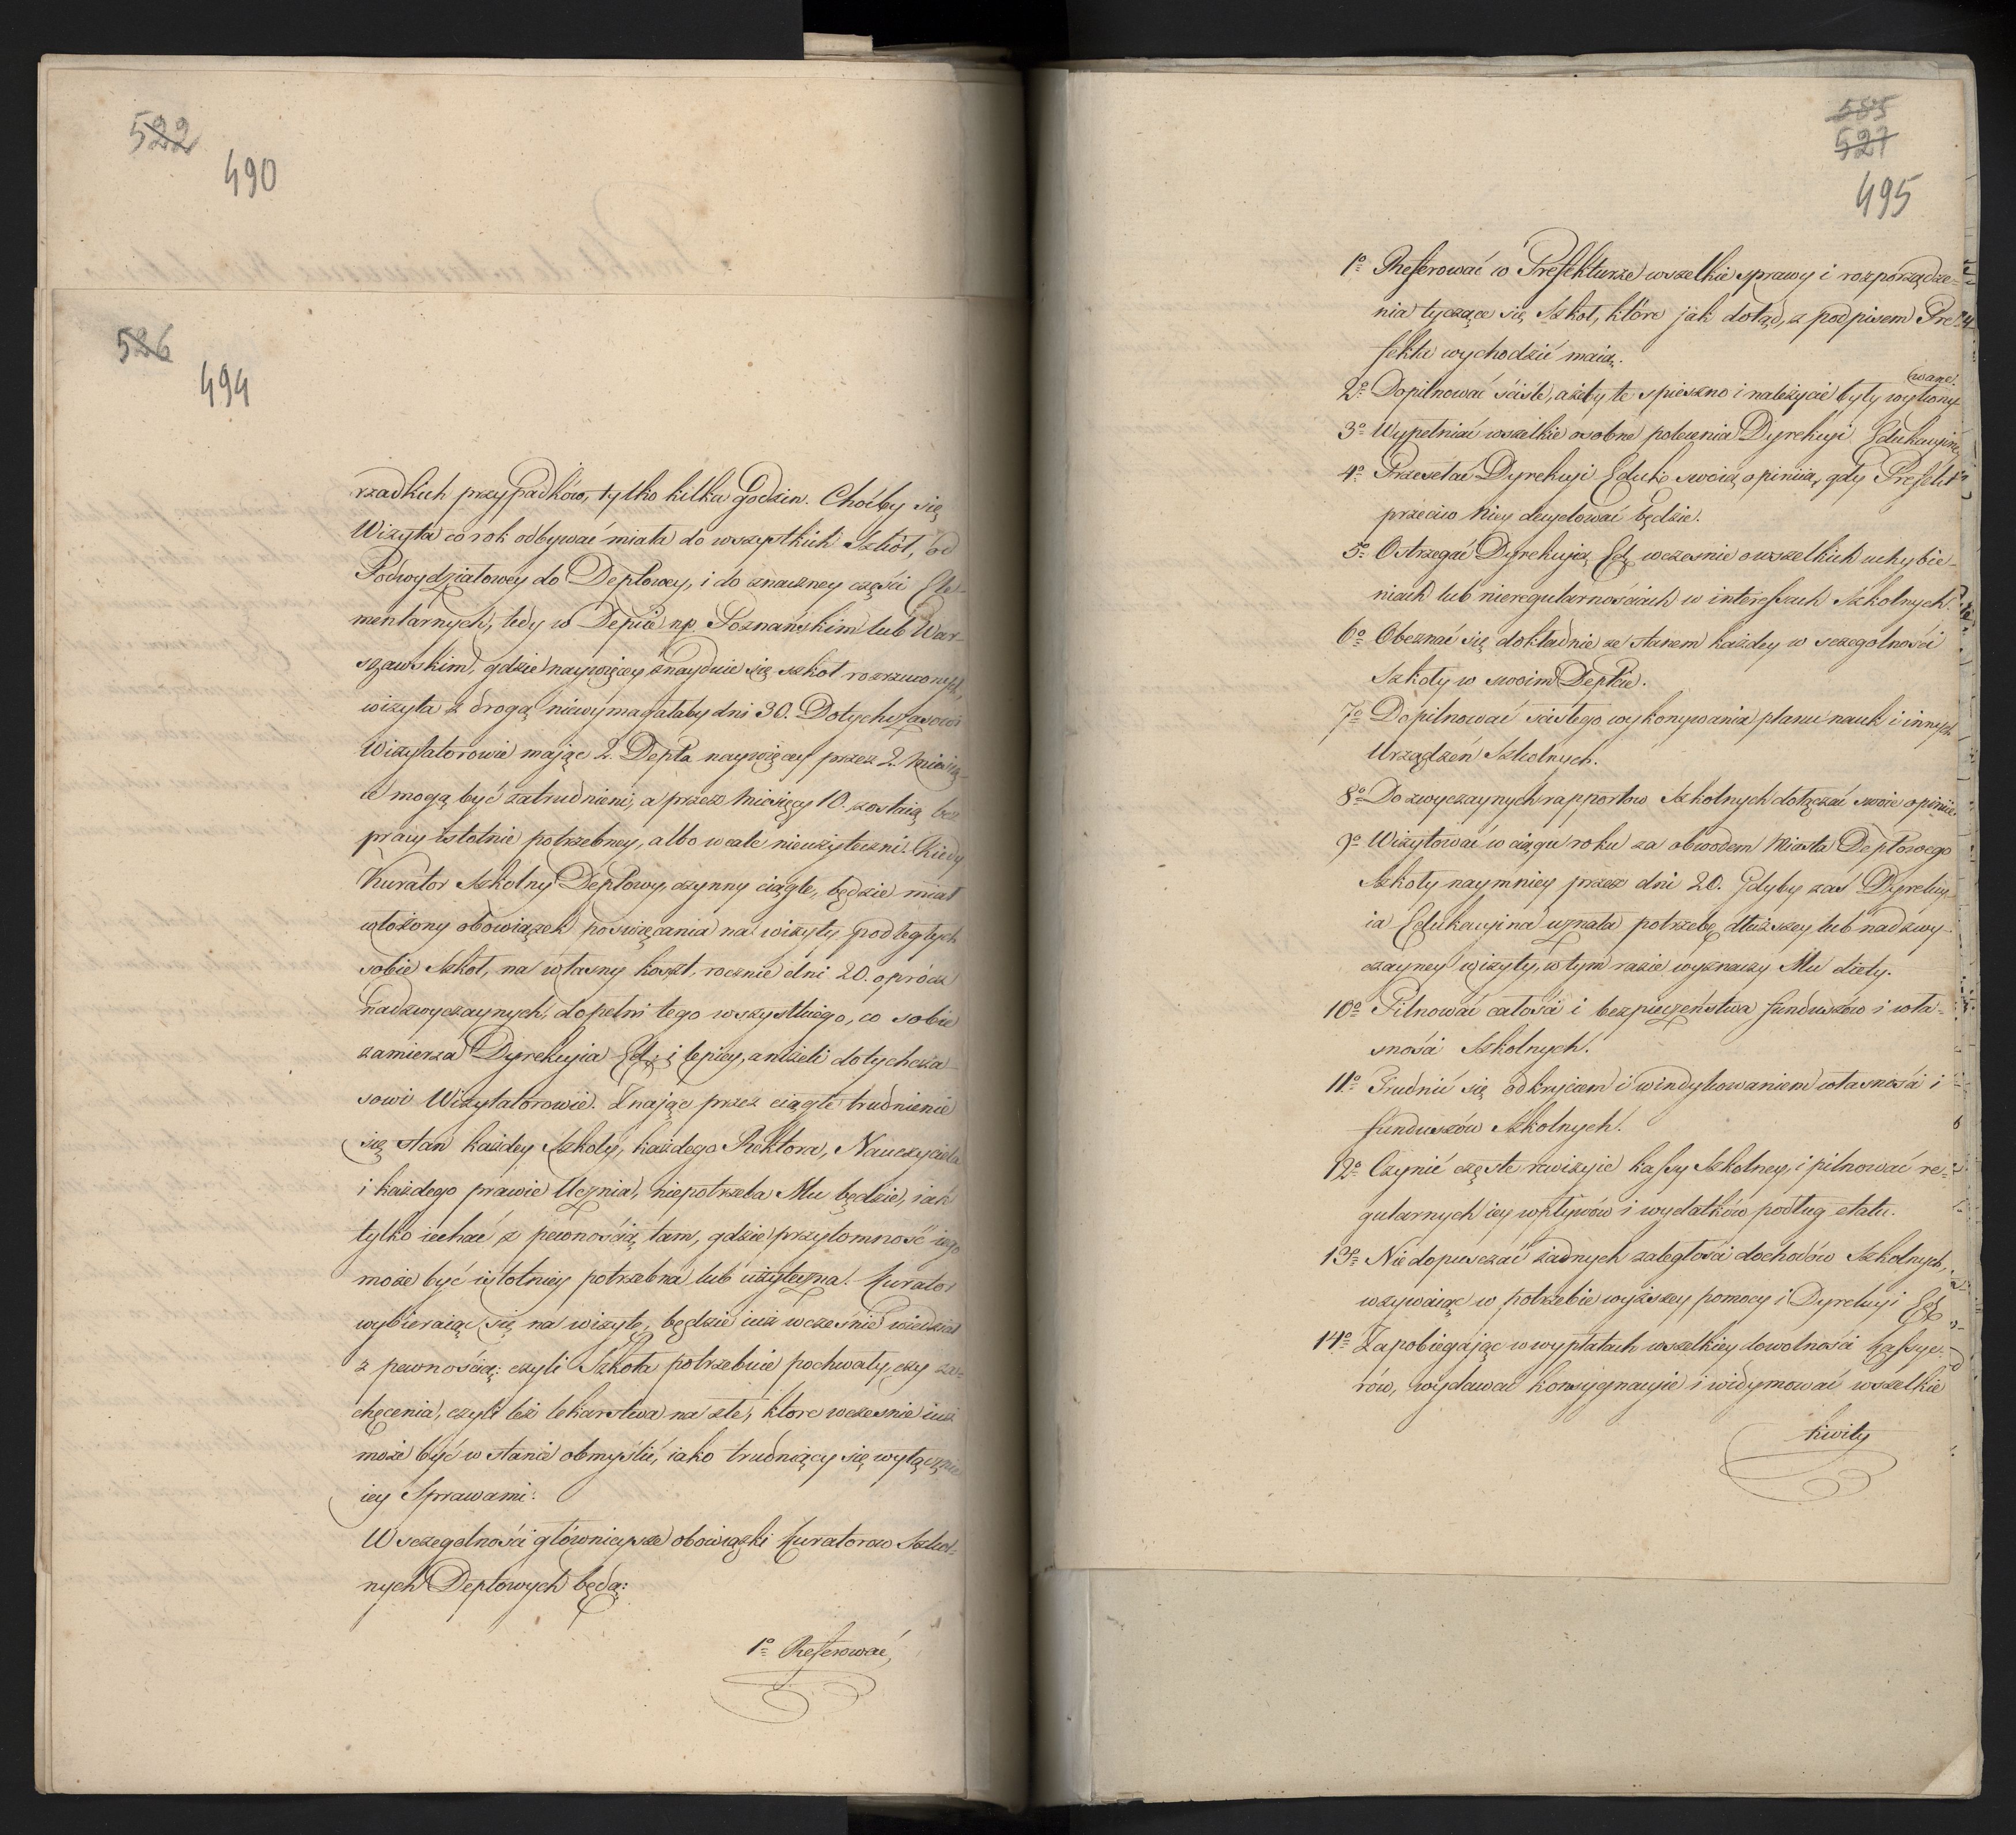 522
490
526
494
rzadkich przypadków, tylko kilku Godzin. Choćby się
Wizyta co rok odbywać miała do wszystkich Szkół, od
Podwydziałowey do Deptowey, i do znaczney części Ele-
mentarnych, tedy w Depcie np. Poznańskim lub War-
szawskim, gdzie naywięcey znayduie się szkół rozrzuconych,
wizyta z drogą niewymagałaby dni 30. Dotychczasowi
Wizytatorowie mając 2. Depta naywięcey przez 2. Miesią-
ce mogą być zatrudnieni, a przez Miesięcy 10. zostaią bez
pracy istotnie potrzebney, albo wcale nieużyteczni. Kiedy
Kurator Szkolny Deptowy, czynny ciągle, będzie miał
włożony obowiązek poswięcania na wizyty podległych
sobie Szkół, na własny koszt, rocznie dni 20. oprócz
nadzwyczaynych, dopełni tego wszystkiego, co sobie
zamierza Dyrekcyia Ed. i lepiey, aniżeli dotychcza-
sowi Wizytatorowie. Znając przez ciągłe trudnienie
się stan każdey Szkoły, każdego Rektora, Nauczyciela
i każdego prawie Ucznia, niepotrzeba Mu będzie, iak
tylko iechać z pewnością tam, gdzie przytomność iego
może być istotniey potrzebna lub użyteczna. Kurator
wybieraiąc się na wizytę, będzie iuż wcześnie wiedział
z pewnością: czyli Szkoła potrzebuie pochwały, czy za-
chęcenia, czyli też lekarstwa na złe, które wczesnie iuż
może być w stanie obmyślić, iako trudniący się wyłącznie
iey Sprawami.
W szczególności główniejsze obowiązki Kuratorów Szkol-
nych Deptowych będą:
1o Referować,
585
527
495
1o Referować w Prefekturze wszelkie sprawy i rozporządze-
nia tyczące się Szkół, które jak dotąd, z podpisem Pre-
fekta wychodzić maią.
wane.
2o Dopilnować ściśle, ażeby te spieszno i należycie były wykony-
3o Wypełniać wszelkie osobne polecenia Dyrekcyi Edukacyiney
4o Przesełać Dyrekcyi Eduk. swoią opiniią, gdy Prefekt
przeciw Niey decydować będzie.
5o Ostrzegać Dyrekcyią Ed. wczesnie o wszelkich uchybie-
niach lub nieregularnościach w interessach Szkolnych.
6o Obeznać się dokładnie ze stanem każdey w szczególności
Szkoły w swoim Depcie.
7o Dopilnować ścisłego wykonywania planu nauk i innych
Urządzeń Szkolnych.
8o Do zwyczaynych rapportów Szkolnych dołączać swoie opiniie.
9o Wizytować w ciągu roku za obwodem Miasta Deptowego
Szkoły naymniey przez dni 20. Gdyby zaś Dyrekcy-
ia Edukacyina uznała potrzebę dłuższey lub nadzwy-
czayney wizyty, w tym razie wyznaczy Mu diety.
10o Pilnować całości i bezpieczeństwa funduszów i wła-
sności Szkolnych.
11o Trudnić się odkryciem i windykowaniem własności i
funduszów Szkolnych.
12o Czynić częste rewizyie kassy Szkolney, i pilnować re-
gularnych iey wpływów i wydatków podług etatu.
13o Nie dopuszczać żadnych zaległości dochodów Szkolnych,
wzywaiąc w potrzebie wyższey pomocy i Dyrekcyi Ed.
14o Zapobiegając w wypłatach wszelkiey dowolności Kassye-
rów, wydawać konsygnacyie i widymować wszelkie
kwity